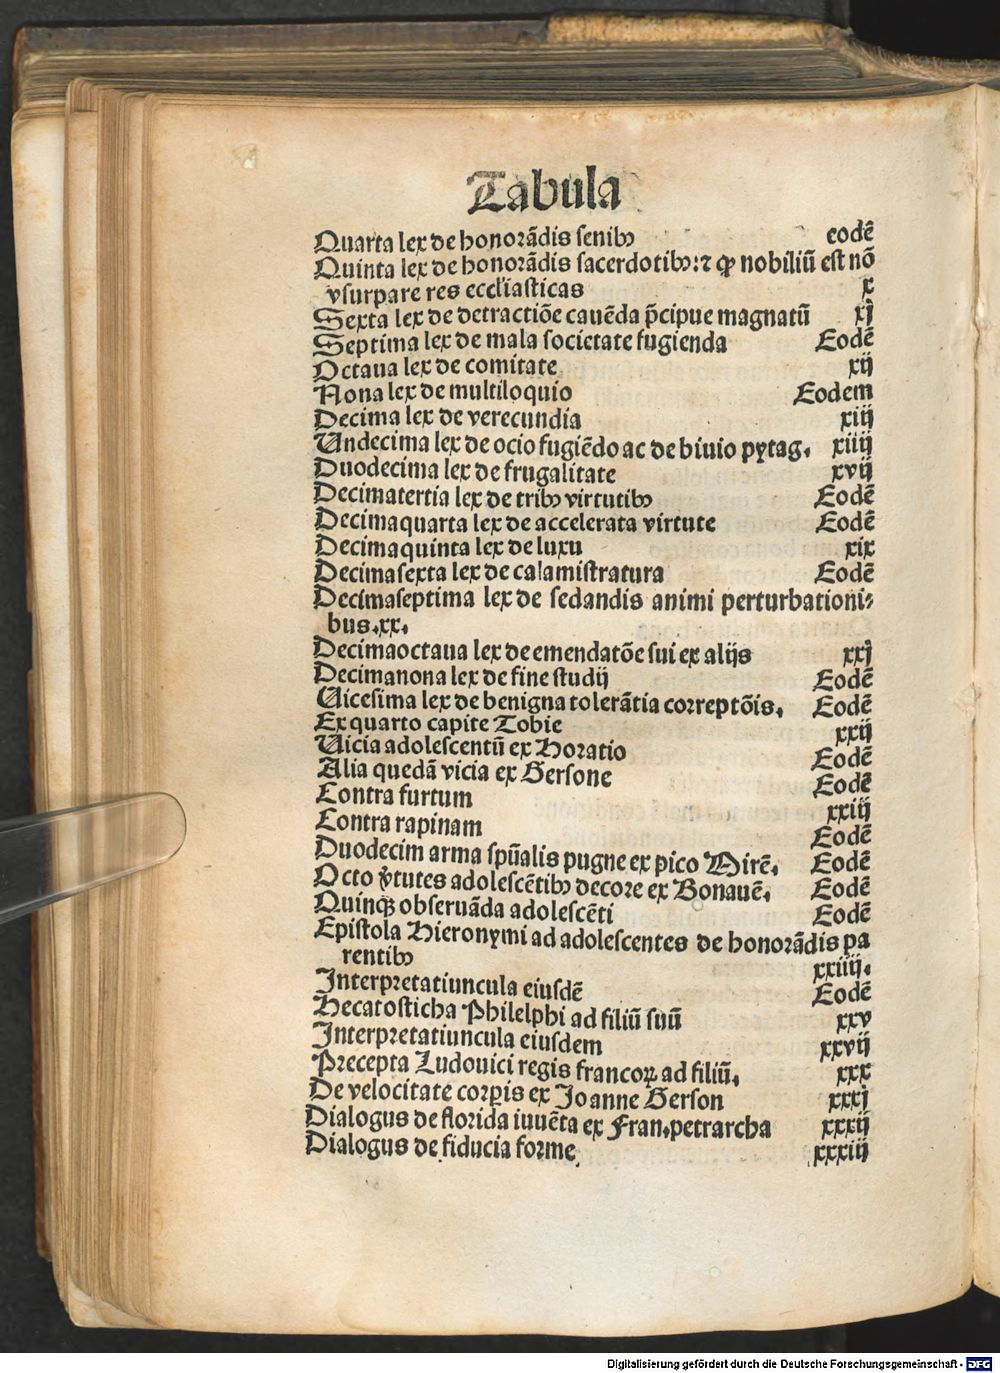 Tabula
Quarta lex de honorãdis senibꝰ eodẽ
Quinta lex de honorãdis sacerdotibꝰ: ⁊ ꝙ nobiliũ est nõ
vsurpare res eccl'iasticas x
Sexta lex de detractiõe cauẽda p̃cipue magnatũ xj
Septima lex de mala societate fugienda Eodẽ
Octaua lex de comitate xij
Nona lex de multiloquio Eodem
Decima lex de verecundia xiij
Undecima lex de ocio fugiẽdo ac de biuio pytag. xiiij
Duodecima lex de frugalitate xvij
Decimatertia lex de tribꝰ virtutibꝰ Eodẽ
Decimaquarta lex de accelerata virtute Eodẽ
Decimaquinta lex de luxu xix
Decimasexta lex de calamistratura Eodẽ
Decimaseptima lex de sedandis animi perturbationi⸗
bus.xx.
Decimaoctaua lex de emendatõe sui ex alijs xxj
Decimanona lex de fine studij Eodẽ
Uicesima lex de benigna tolerãtia correptõis. Eodẽ
Ex quarto capite Tobie xxij
Uicia adolescentũ ex Horatio Eodẽ
Alia quedã vicia ex Gersone Eodẽ
Contra furtum xxiij
Contra rapinam Eodẽ
Duodecim arma sp̃ualis pugne ex pico Mirẽ. Eodẽ
Octo v̓tutes adolescẽtibꝰ decore ex Bonauẽ. Eodẽ
Quinqꝫ obseruãda adolescẽti Eodẽ
Epistola Hieronymi ad adolescentes de honorãdis pa
rentibꝰ xxiiij.
Interpretatiuncula eiusdẽ Eodẽ
Hecatosticha Philelphi ad filiũ suũ xxv
Interpretatiuncula eiusdem xxvij
Precepta Ludouici regis francoꝝ ad filiũ. xxx
De velocitate corꝑis ex Joanne Gerson xxxj
Dialogus de florida iuuẽta ex Fran.petrarcha xxxij
Dialogus de fiducia forme xxxiij
Digitalisierung gefördert durch die Deutsche Forschungsgemeinschaft - DFG